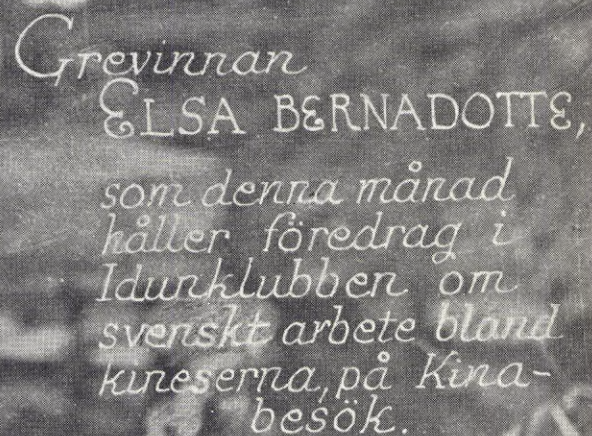 Grevinnan
ELSA BERNADOTTE,
som denna månad
håller föredrag i
Idunklubben om
svenskt arbete bland
kineserna, på Kina-
besök.